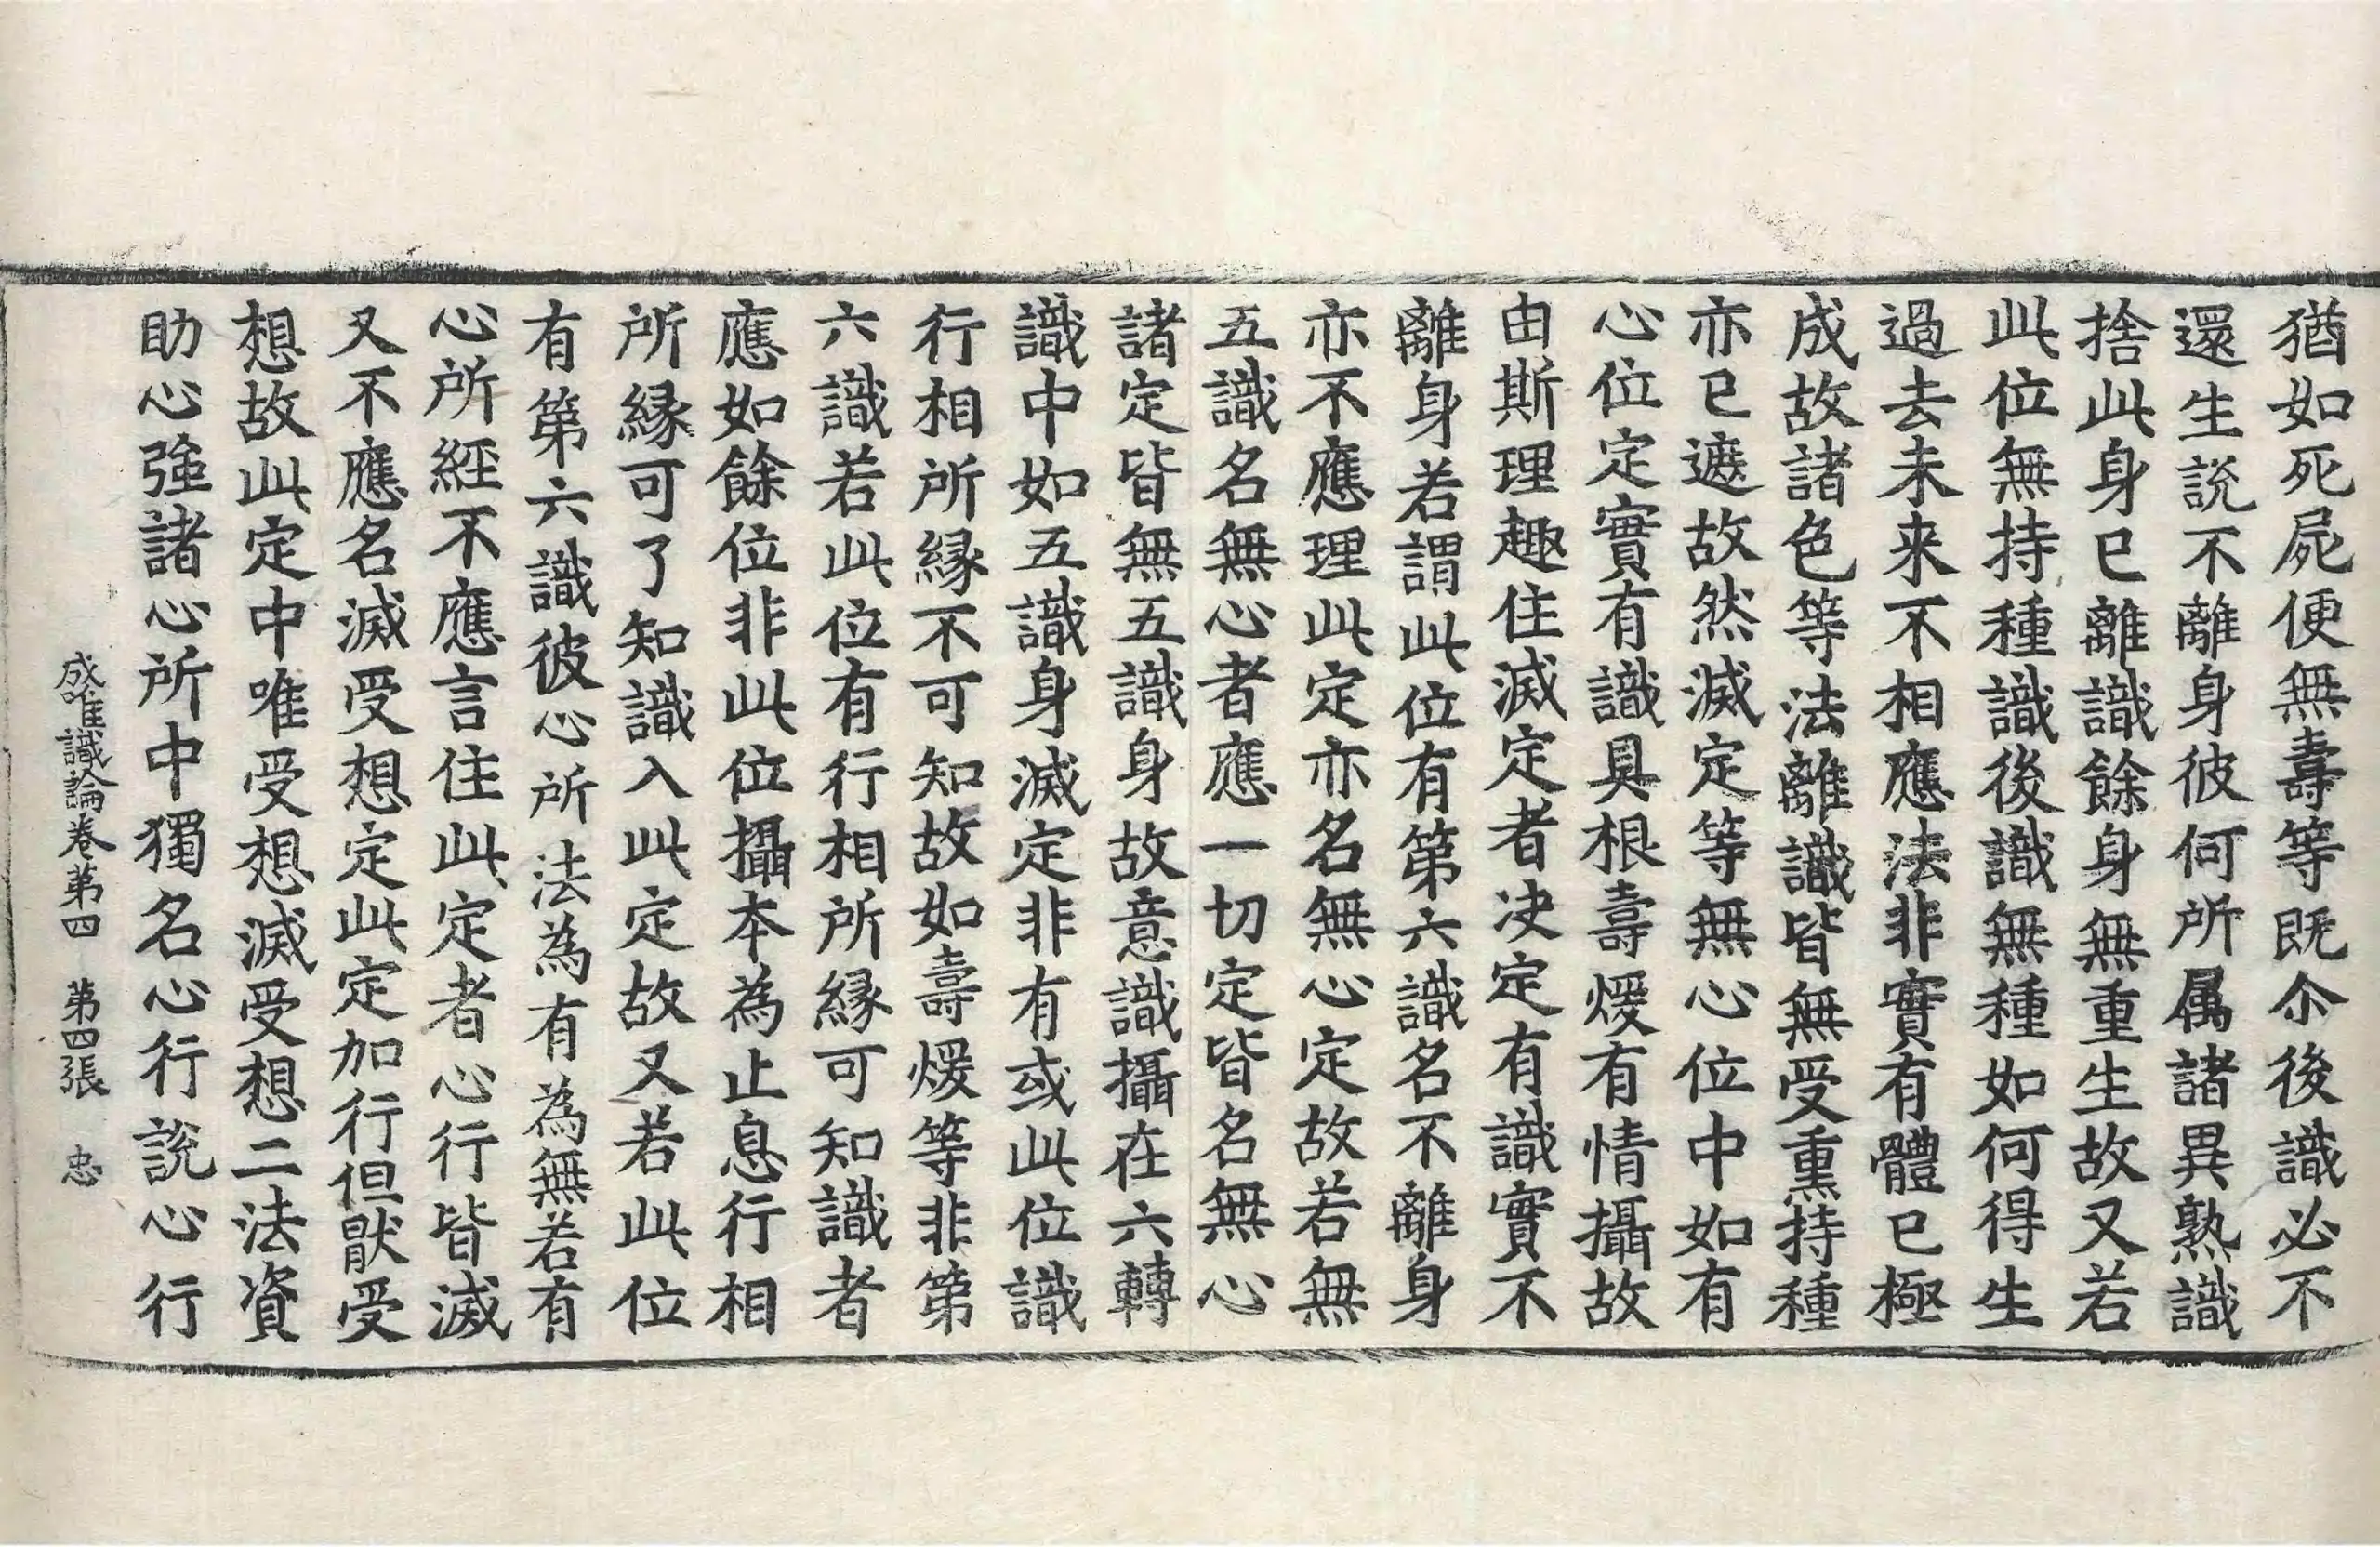 猶如死屍便無壽等既尒後識必不
還生說不離身彼何所属諸異熟識
捨此身已離識餘身無重生故又若
此位無持種識後識無種如何得生
過去未来不相應法非實有體已極
成故諸色等法離識皆無受熏持種
亦已遮故然滅定等無心位中如有
心位定實有識具根壽煖有情攝故
由斯理趣住滅定者决定有識實不
離身若謂此位有第六識名不離身
亦不應理此定亦名無心定故若無
五識名無心者應一切定皆名無心
諸定皆無五識身故意識攝在六轉
識中如五識身滅定非有或此位識
行相所縁不可知故如壽煖等非第
六識若此位有行相所縁可知識者
應如餘位非此位攝本為止息行相
所縁可了知識入此定故又若此位
有第六識彼心所法為有為無若有
心所經不應言住此定者心行皆滅
又不應名滅受想定此定加行但猒受
想故此定中唯受想滅受想二法資
助心強諸心所中獨名心行說心行
成唯識論卷第四　第四張　忠